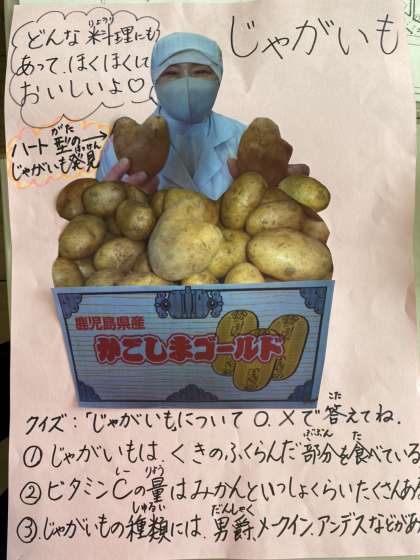 じゃがいも
どんな料理にも
りょうり
あって、ほくほくして
おいしいよ♡
ハート型の→
がた
じゃがいも発見
はっけん
鹿児島県産
かごしまゴールド
クイズ:「じゃがいも」について○、×で答えてね。
こた
①じゃがいもは、くきのふくらんだ部分を食べている
ぶぶん た
②ビタミンCの量はみかんといっしょくらいたくさんあ
しー りょう
③じゃがいもの種類には、男爵、メークイン、アンデスなどがあ
しゅるい だんしゃく